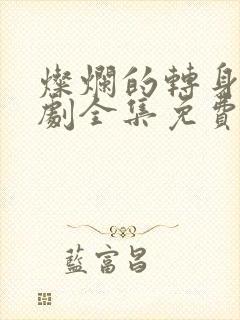 燦爛的轉身
劇全集免費
藍富昌